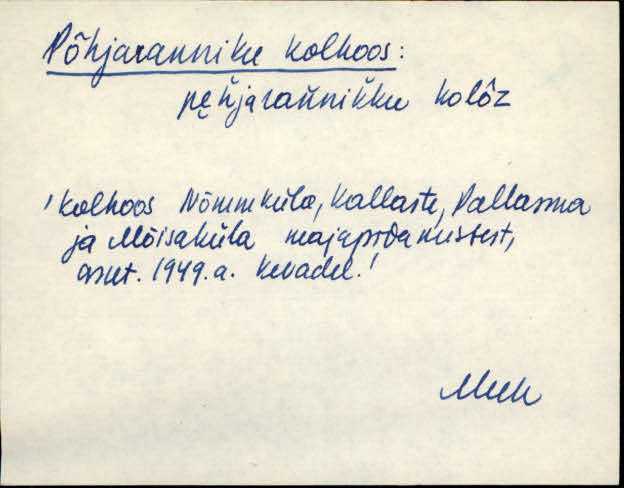 Põhjaranniku kolhoos:
pe̮h́jarańnikku kolôz
'kolhoos Nõmmküla, Kallaste, Pallasma
ja Mõisaküla majapidamistest,
asut. 1949.a. kevadel.'
Muh